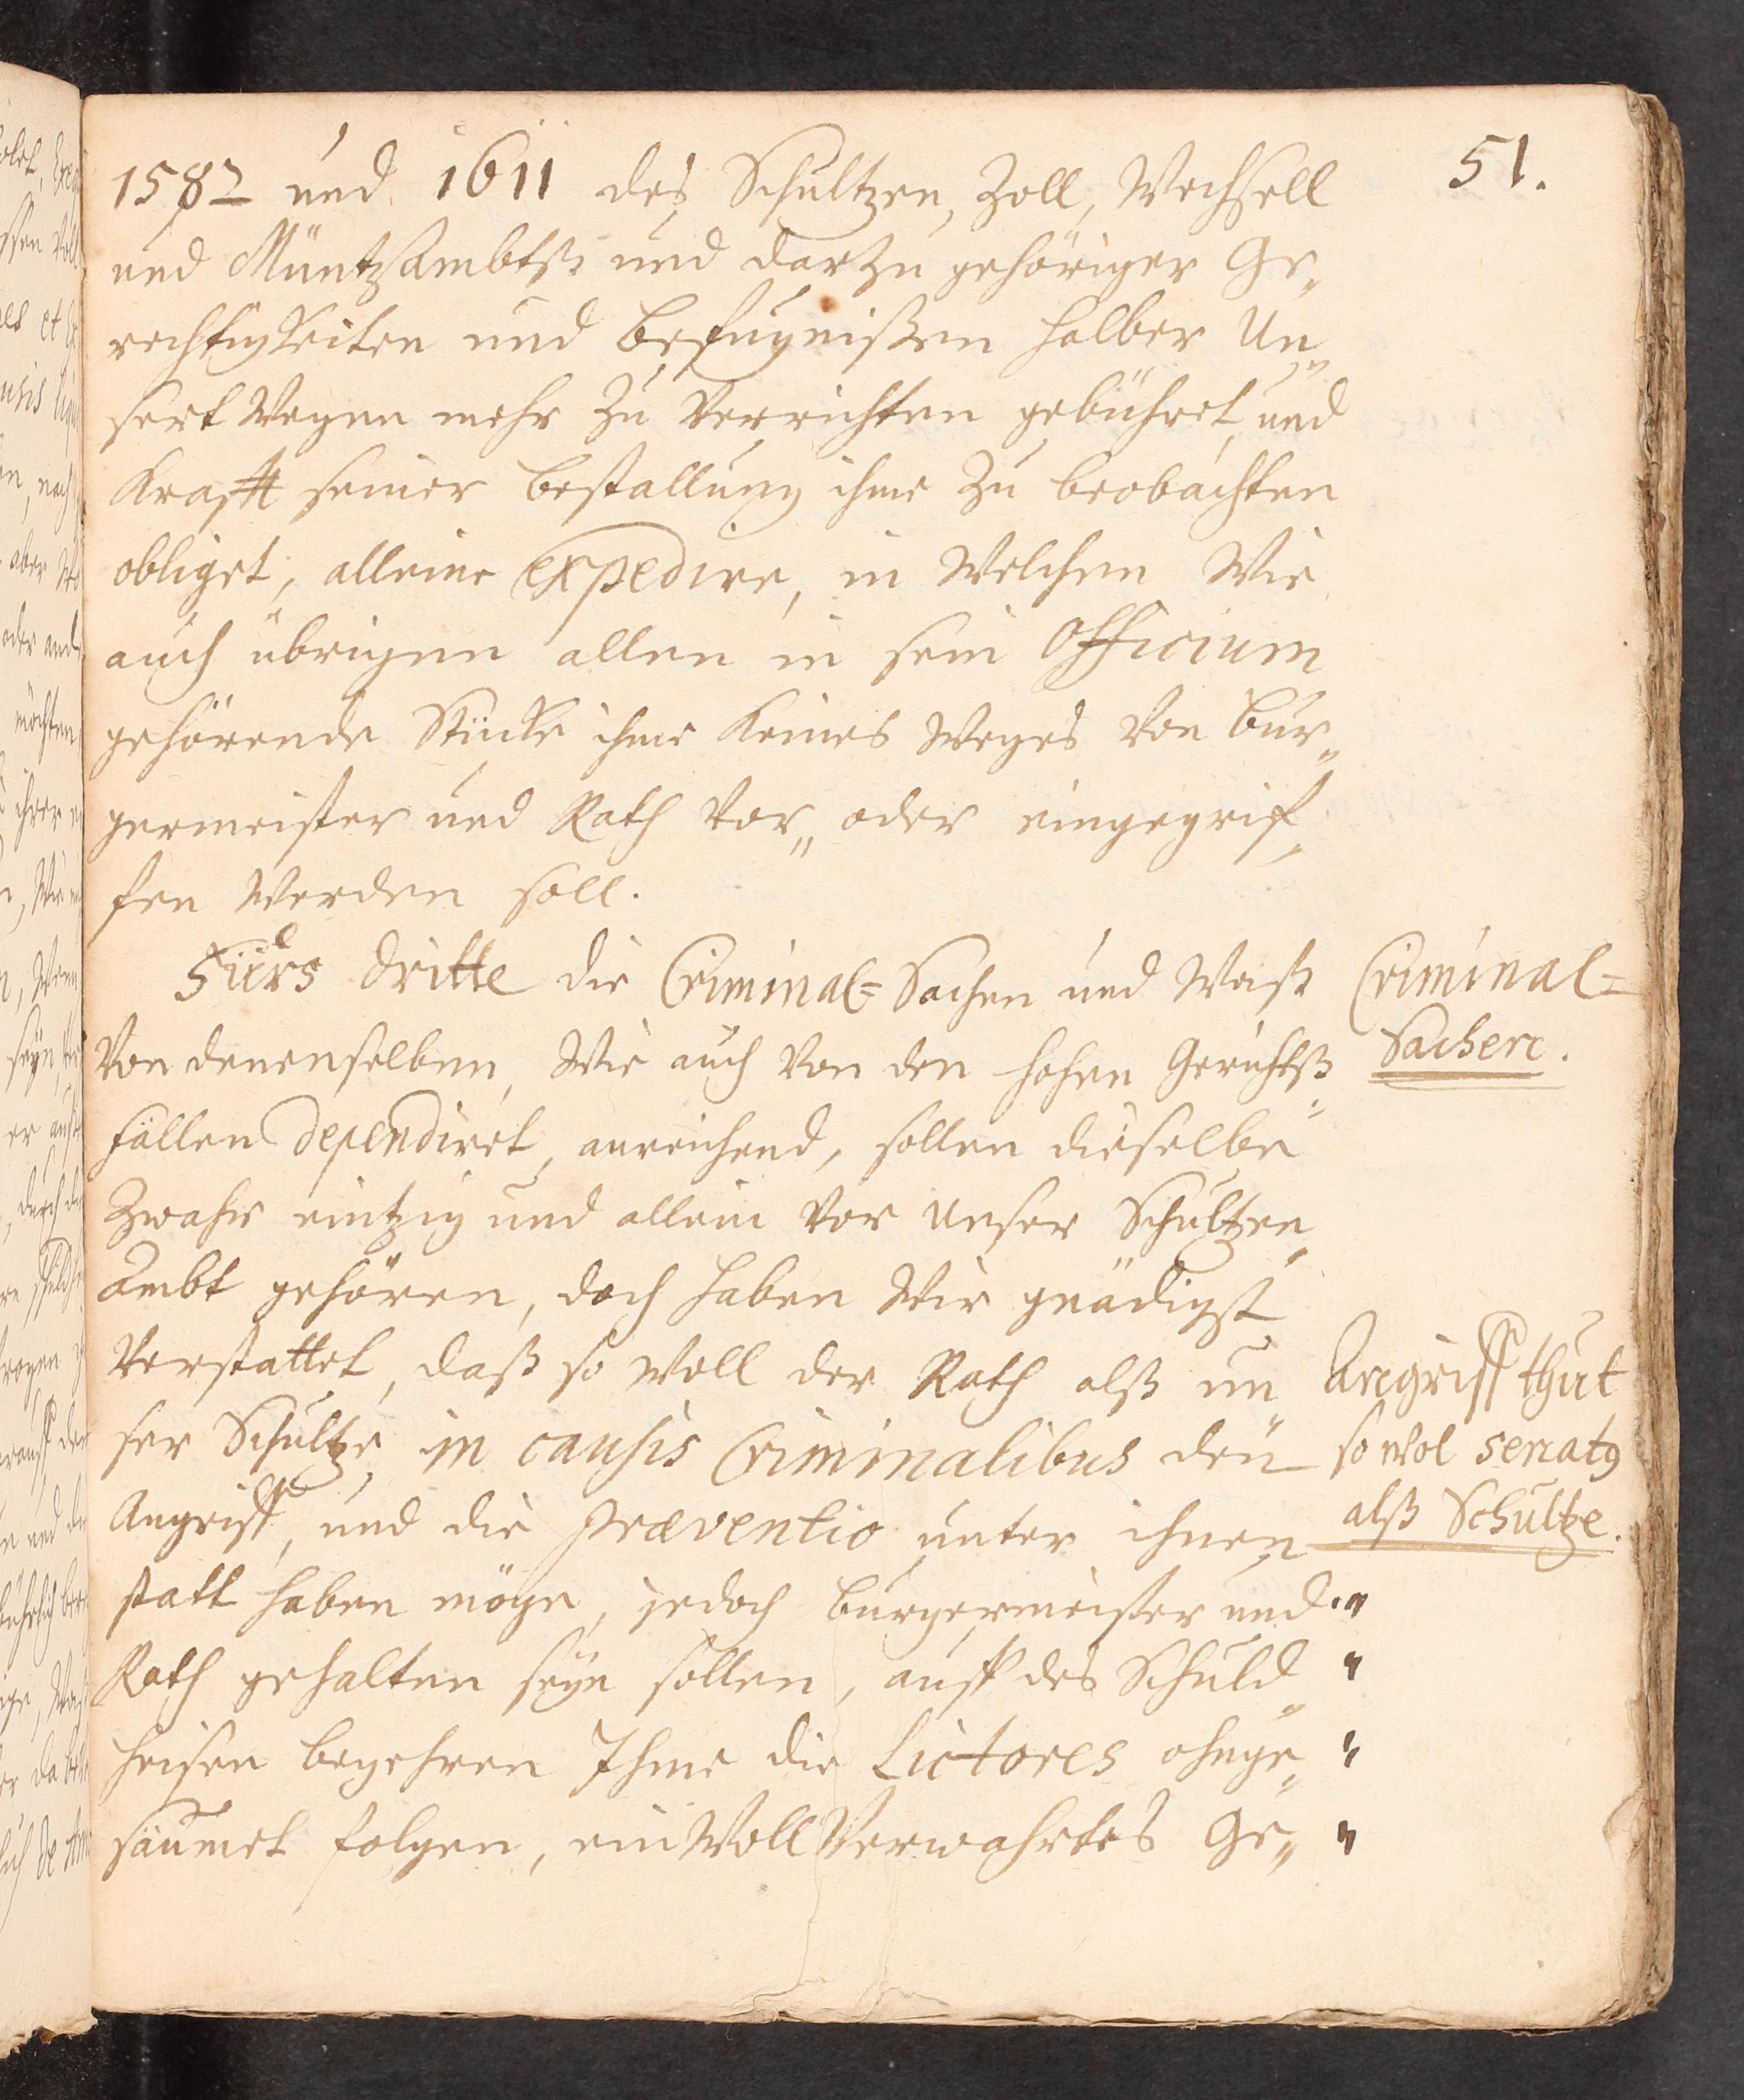 51.
1582 und 1611 des Schultzen, Zoll, Wechsell
und Müntzambtß und darzu gehöriger Ge„
rechtigkeiten und befugnißen halber Un„
sert Wegen mehr zu Verrichten gebühret, und
Krafft seiner bestallung ihme zu beobachten
obliget, alleine expedire, in Welchen Wie
auch übrigen allen in sein Officium
gehörende Stücke ihme Keines Weges von bur„
germeister und Rath vor„ oder eingegrif„
fen Werden soll.
Fürs dritte die Criminal= Sachen und Waß
Criminal=
Sachen.
Von denenselben, Wie auch Von den hohen Gerichtß„
fällen dependiret, anreichend, sollen dieselbe
Zwahr eintzig und allein vor unser Schultzen„
ambt gehören, doch haben Wir gnädigst
Verstattet, daß so Woll der Rath alß un„
ser Schultze, in causis Criminalibus den
Angriff, und die præventio unter ihnen
Angriff thut
so wol senatg
alß Schultze.
statt haben möge, jedoch burgermeister und "
Rath gehalten seyn sollen, auff des Schuld„ "
heisen begehren Ihme die Lictores ohnge„ "
säumet folgen, ein Woll Verwahrtes Ge„ "